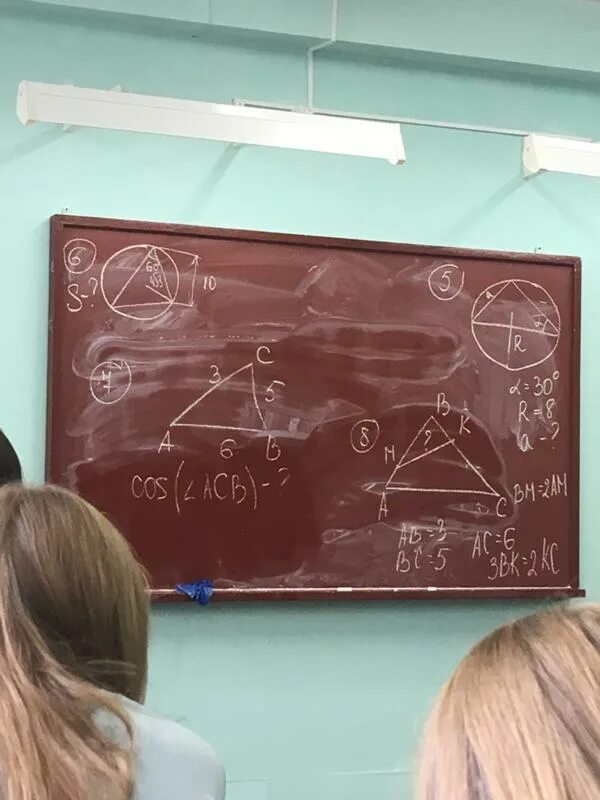 6
S-?
10
7
3
C
5
A
6
B
cos(∠ACB)-?
5
a
α
R
α=30°
R=8
a-?
8
B
K
M
?
A
C
BM=2AM
AB=3
BC=5
AC=6
3BK=2KC